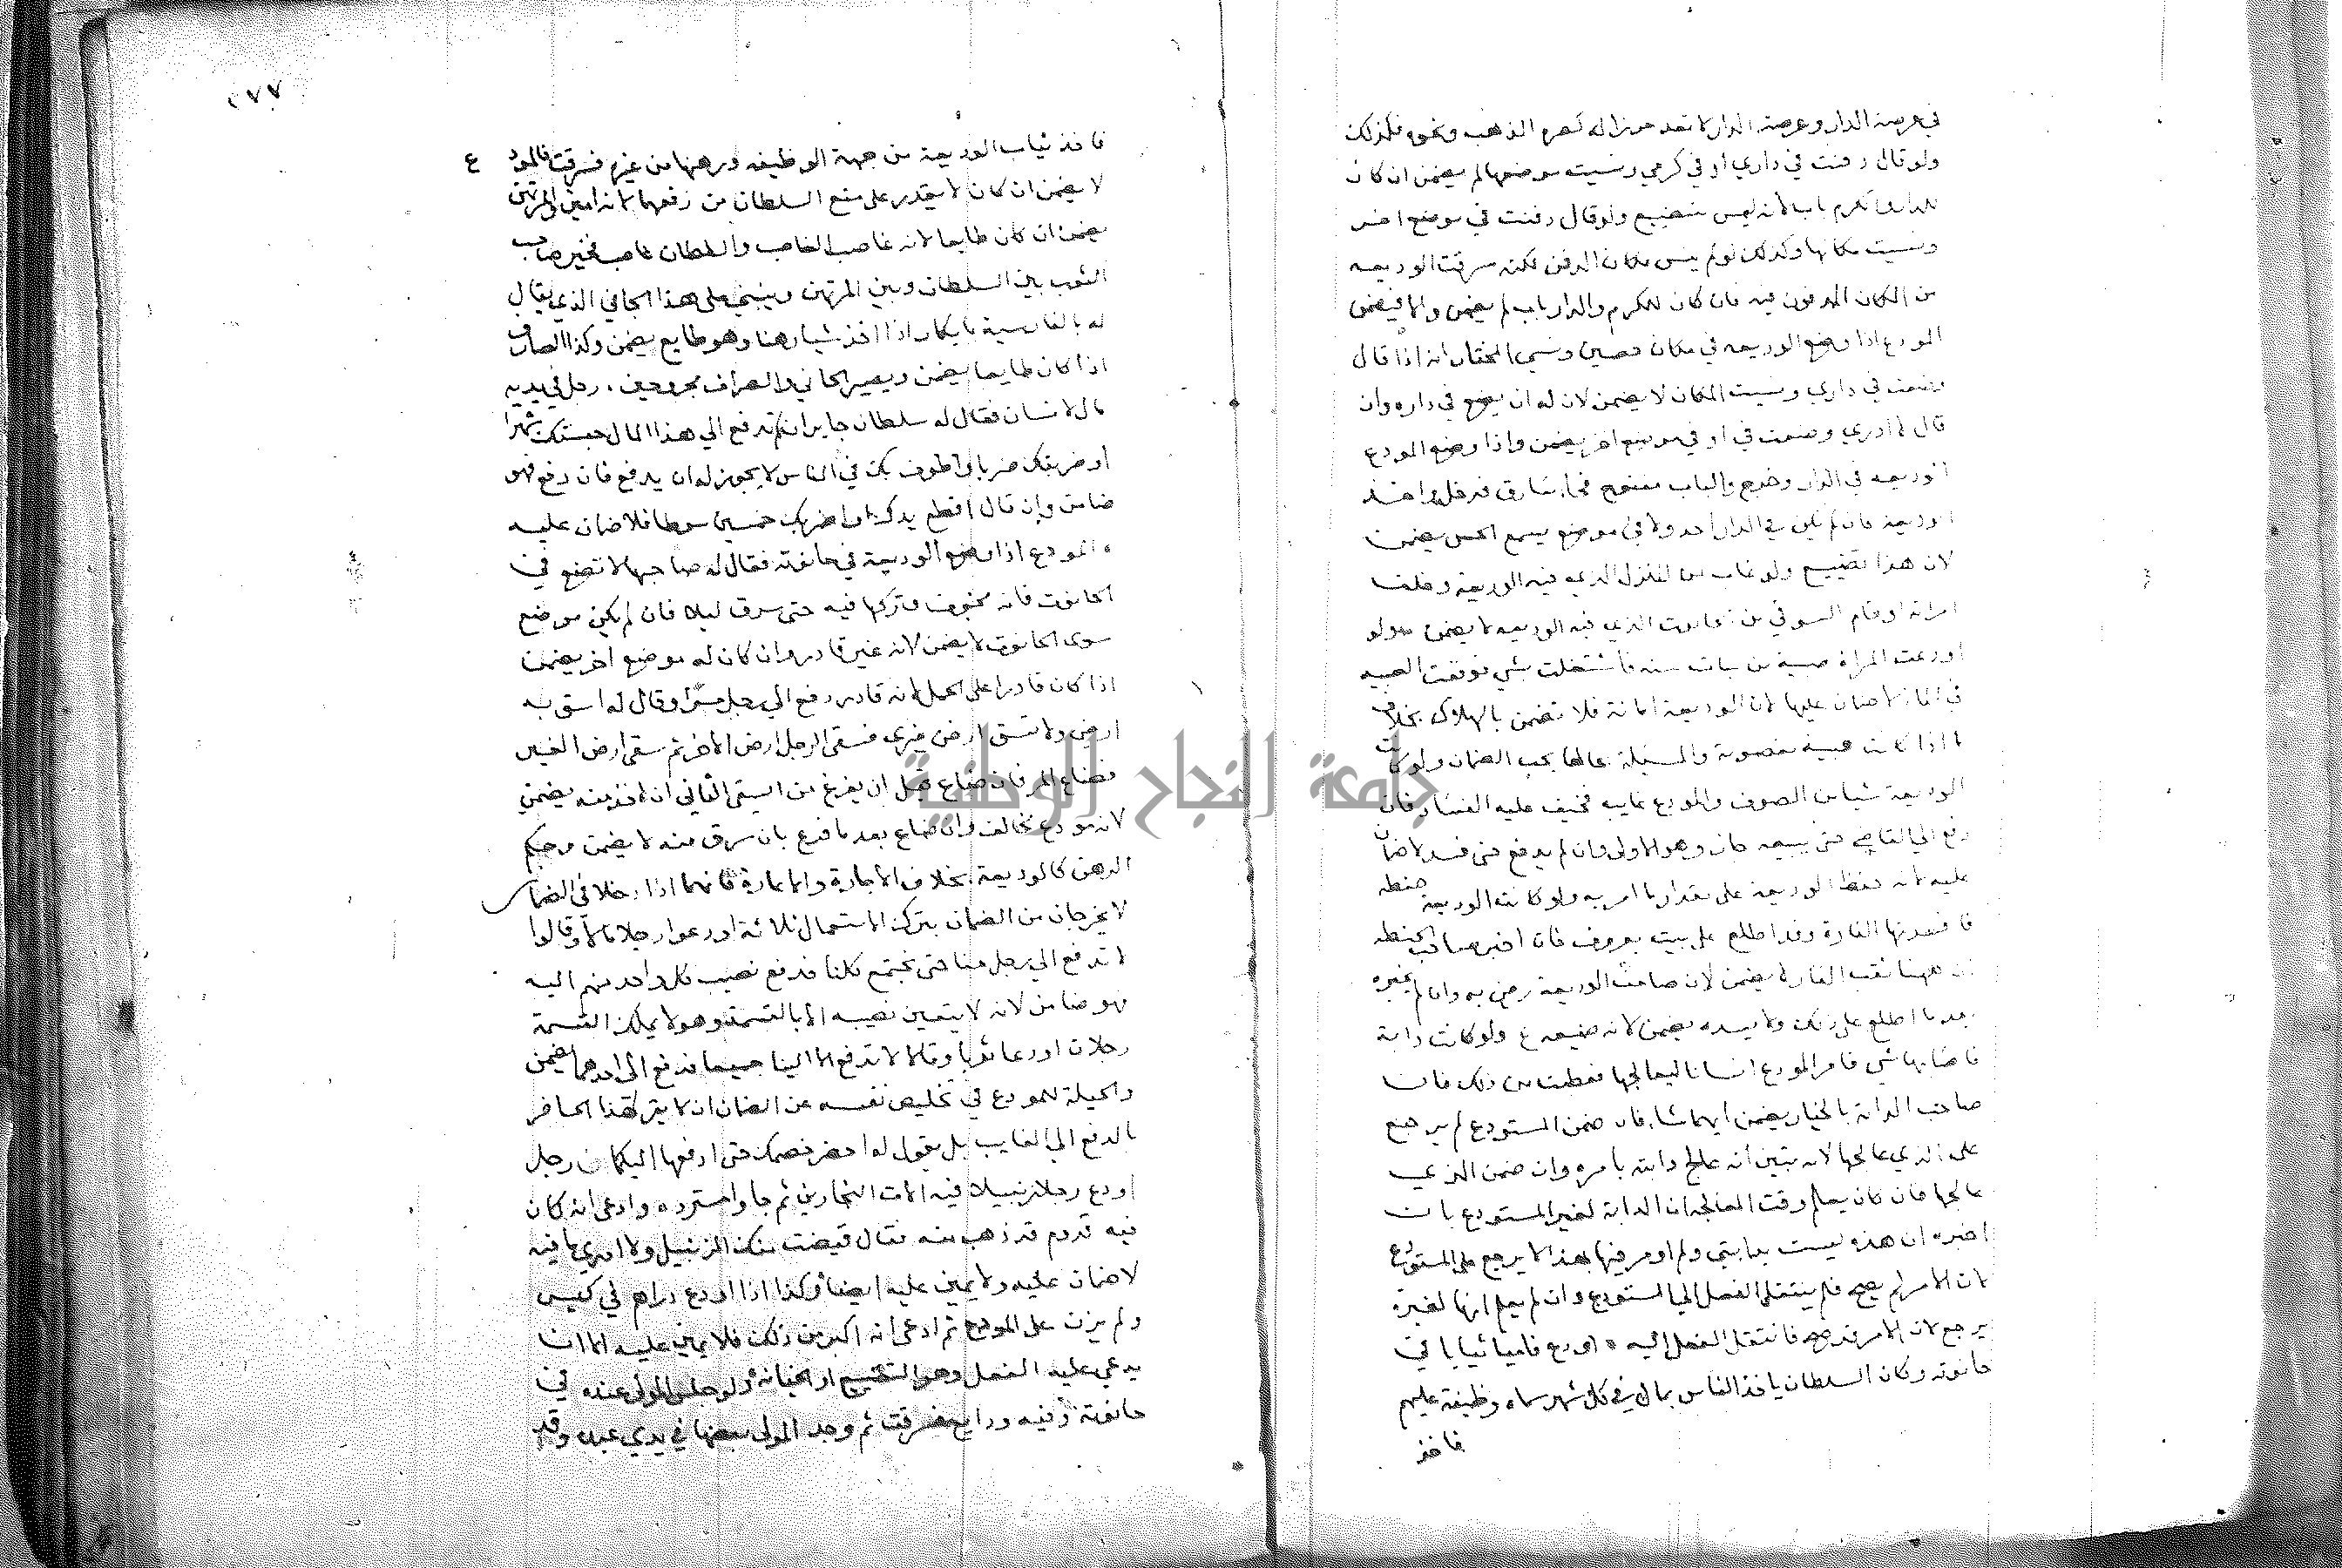 في عرصة الدار وعرصة الدار لا تعد حرزا له كصرة الذهب ونحوه فكذلك
ولو قال دفنت في داري او في كرمي ونسيت موضعها لم يضمن ان كان
للدار والكرم باب لانه ليس بتضييع ولو قال دفنت في موضع اخر
ونسيت مكانها وكذلك لو لم ينس مكان الدفن لكنه سرقت الوديعه
من المكان المدفون فيه فان كان للكرم والدار باب لم يضمن والا فيضمن
المودع اذا وضع الوديعه في مكان حصين ونسي المختار انه اذا قال
وضعت في داري ونسيت المكان لا يضمن لان له ان يضع في داره وان
قال لا ادري وضعت في او في موضع اخر يضمن واذا وضع المودع
الوديعه في الدار وخرج والباب مفتوح فجاء سارق فدخل واخذ
الوديعة فان لم يكن في الدار احد ولا في موضع يسمع الحس يضمن
لان هذا تضييع ولو غاب من المنزل الذي فيه الوديعة وخلف
امراته او قام السوقي من الحانوت الذي فيه الوديعه لا يضمن ولو
اودعت المراة صبية من بنات سنه فاشتغلت بشي فوقعت الصبيه
في الماء لا ضمان عليها لان الوديعة امانة فلا تضمن بالهلاك بخلاف
ما اذا كانت صبية مغصوبة والمسئلة بحالها يجب الضمان ولو كانت
الوديعة شيا من الصوف والمودع غايب فخيف عليه الفساد فان
رفع الي القاضي حتى يبيعه جاز وهو الاولى وان لم يدفع حتى فسد لا ضمان
عليه لانه حفظ الوديعة على مقدار ما امر به ولو كانت الوديعة حنطه
فافسدتها الفارة وقد اطلع على بيت معروف فان اخبر صاحب الحنطه
ان ههنا ثقب الفار لا يضمن لان صاحب الوديعة رضي به وان لم يخبره
بعد ما اطلع على ذلك ولا يسده يضمن لانه ضيعه ع ولو كانت دابة
فاصابها شي فامر المودع انسانا ليعالجها فعطبت من ذلك فان
صاحب الدابة بالخيار يضمن ايهما شاء فان ضمن المستودع لم يرجع
على الذي عالجها لانه تبين انه عالج دابته بامره وان ضمن الذي
عالجها فان كان يعلم وقت المعالجه ان الدابة لغير المستودع بان
اخبره ان هذه ليست بدابتي ولم اومر فيها بهذا لا يرجع على المستودع
لان الامر لم يصح فلم ينتقل الفعل الي المستودع وان لم يعلم انها لغيره
يرجع لان الامر قد صح فانتقل الفعل اليه اودع فاميا ثيابا في
حانوته وكان السلطان ياخذ الناس بمال في كل شهر سماه وظيفة عليهم
فاخذ
٢٧٧
فاخذ ثياب الوديعة من جهة الوظيفه ورهنها من غيره فسرقت فالمودع
لا يضمن ان كان لا يقدر على منع السلطان من رفعها لانه امين والمرتهن
يضمن ان كان طايعا لانه غاصب الغاصب والسلطان غاصب فخير صاحب
الثوب بين السلطان وبين المرتهن وينبني على هذا الجابي الذي يقال
له بالفارسية بايكار اذا اخذ شيا رهنا وهو طايع يضمن وكذا الصراف
اذا كان طايعا يضمن ويصير الجابي والصراف مجروحين . رجل في يديه
مال لانسان فقال له سلطان جاير ان لم تدفع الي هذا المال حبستك شهرا
او ضربتك ضربا او اطوف بك في الناس لا يجوز له ان يدفع فان دفع فهو
ضامن وان قال اقطع يدك او اضربك خمسين سوطا فلا ضمان عليه
المودع اذا وضع الوديعة في حانوته فقال له صاحبها لا تضع في
الحانوت فانه مخوف وتركها فيه حتى سرق ليلا فان لم يكن موضع
سوى الحانوت لا يضمن لانه غير قادر وان كان له موضع اخر يضمن
اذا كان قادرا على الحمل لانه قادر دفع الي رجل مرا وقال له اسق به
ارضي ولا تسق ارض غيري فسقى الرجل ارض الامر ثم سقى ارض الغير
فضاع المر فان ضاع قبل ان يفرغ من السقي الثاني ان اخذ منه يضمن
لانه مودع مخالف وان ضاع بعد ما فرغ بان سرق منه لا يضمن وحكم
الرهن كالوديعة بخلاف الاجارة والاعارة فانهما اذا دخلا في الضمان
لا يخرجان من الضمان بترك الاستعمال ثلاثة اودعوا رجلا مالا وقالوا
لا تدفع الي رجل منا حتى يجتمع كلنا فدفع نصيب كل واحد منهم اليه
فهو ضامن لانه لا يتعين نصيبه الا بالقسمة وهو لا يملك القسمة
رجلان اودعا ثوبا وقالا لا تدفع الا الينا جميعا فدفع الى احدهما يضمن
والحيلة للمودع في تخليص نفسه عن الضمان ان لا يقر لهذا الحاضر
بالدفع الي الغايب بل يقول له احضر خصمك حتى ادفعها اليكما رجل
اودع رجلا زنبيلا فيه الات النجارين ثم جا واسترده وادعى انه كان
فيه قدوم قد ذهب منه فقال قبضت منك الزنبيل ولا ادري ما فيه
لا ضمان عليه ولا يمين عليه ايضا وكذا اذا اودع دراهم في كيس
ولم يزن على المودع ثم ادعى انه اكثر من ذلك فلا يمين عليه الا ان
يدعي عليه الفعل وهو التضييع او الخيانة ولو جلس المولى عبده في
حانوته وفيه ودايع فسرقت ثم وجد المولى بعضها في يدي عبده وقد
جامعة النجاح الوطنية